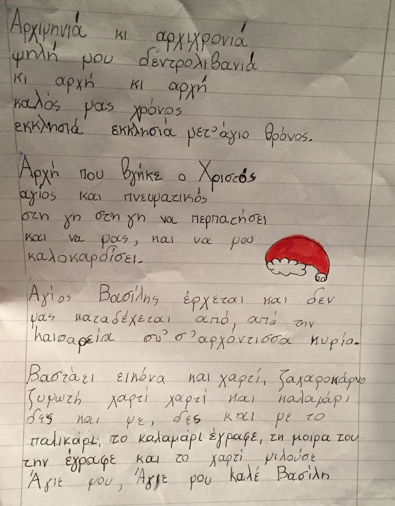 Αρχιμηνιά κι αρχιχρονιά
ψηλή μου δεντρολιβανιά
κι αρχή κι αρχή
καλός μας χρόνος
εκκλησιά εκκλησιά μετ' άγιο θρόνος.
Αρχή που βγήκε ο Χριστός
άγιος και πνευματικός
στη γη στη γη να περπατήσει
και να μας, και να μου
καλοκαρδίσει.
Άγιος Βασίλης έρχεται και δεν
μας καταδέχεται από, από την
Καισαρεία συ' σ' αρχόντισσα κυρία.
Βαστάει εικόνα και χαρτί, ζαχαροκάρνο
ζυμωτή χαρτί χαρτί και καλαμάρι
δες και με, δες και με το
παλικάρι, το καλαμάρι έγραφε, τη μοίρα του
την έγραφε και το χαρτί μιλούσε
Άγιε μου, Άγιε μου καλέ Βασίλη